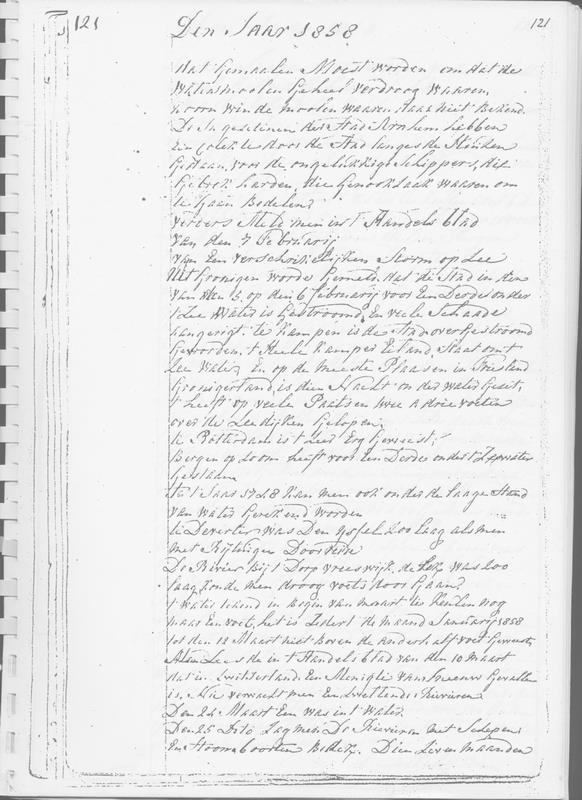 121
Den Jaar 1858
121
dat Gemaalen Moest worden om dat de
Watermoolen Geheel verdroog waaren,
koorn winde moolen waaren daar niet Bekend.
De Ingesetenen der Stad Arnhem hebben
Een Colekte door de Stad langes de Huisen
Gedaan, voor de ongelukkige Schippers, die
Gebrek hadden, die Genootsaak waaren om
te Gaan Bedelen
verders Melt men in 't Handels blad
van den 7 Februarij
van Een verschrikkelijken Storm op Zee
Uit Groningen worde Gemeld, dat de Stad in den
van den 5 op den 6 februarij voor Een Derde onder
Zee Water is Gestroomd, En veele Schaade
aangerigt. te Kampen is de Stad overgestroomd
Geworden, 't Heele Kamper Eiland, Staat ont
Zee Water, En op de meeste Plaasen in Friesland
Groningerland, is dien Nacht onder water Geset,
't heeft op veele Plaatsen twee a drie voeten
over de Zeedijken Gelopen,
te Rotterdam is 't Zeer Erg Geweest,
Bergen op Zoom heeft voor Een Derde onder 't Zeewater
Gestaan,
Het Jaar 1748 kan men ook onder de laage Stand
van water Gerekend worden
te Deventer was Den IJssel Zoo laag als men
met Rijtuigen Doorreden
De Rivier Bij 't Dorp vreeswijk, de Lek was Zoo
laag, konde men droog voets door Gaan,
't Water Stand in Begin van maart te Keulen nog
maar Een voet, het is Zedert de maand Januarij 1858
tot den 12 Maart niet Boven de anderhalf voet Geweest,
Alsmen Leesde in 't Handelsblad van den 10 Maart
dat in Zwitserland Een Menigte van Sneeuw Gevallen
is, Nu verwacht men Een Zwellende Rivieren
Den 24 Maart Een was in 't Water,
Den 25 Dito Zagmen De Rievieren met Schepen
En Stoombooten Bedekt. Dien Zeven Maanden